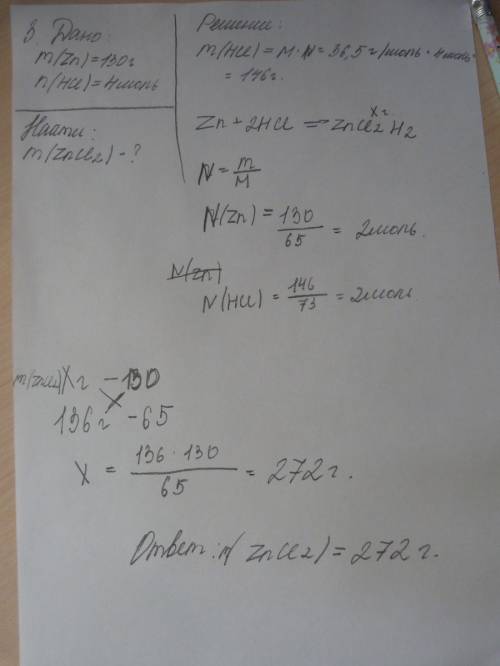 3. Дано:
m(Zn)=130г
n(HCl)=4моль
Найти:
m(ZnCl2)-?
Решение:
m(HCl)=M·N=36,5г/моль·4моль=
=146г.
xг
Zn+2HCl=ZnCl2 H2
N=m/M
N(Zn)=130/65=2моль.
N(Zn)
N(HCl)=146/73=2моль.
m(ZnCl2)Xг-130
136г-65
X=136·130/65=272г.
Ответ: m(ZnCl2)=272г.